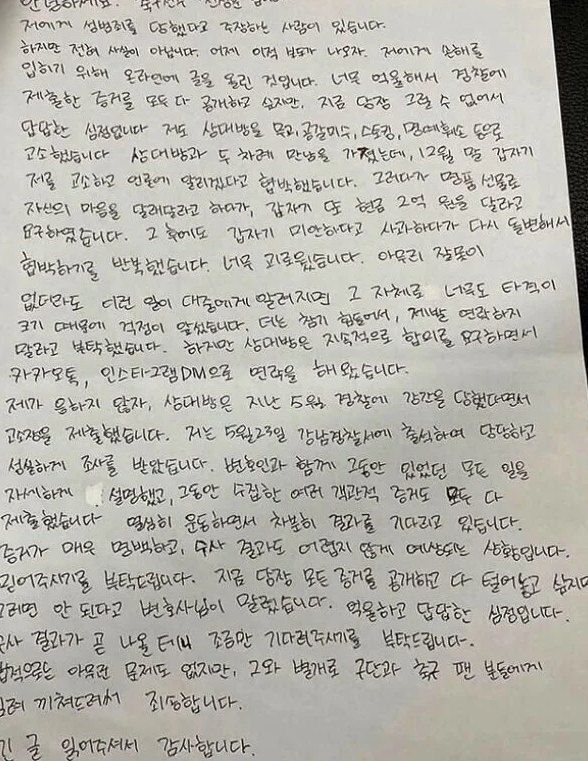 안녕하세요. 축구선수
저에게 성범죄를 당했다고 주장하는 사람이 있습니다.
하지만 전혀 사실이 아닙니다. 어제 이적 보도가 나오자, 저에게 손해를
입히기 위해 온라인에 글을 올린 것입니다. 너무 억울해서 경찰에
제출한 증거를 모두 다 공개하고 싶지만, 지금 당장 그럴 수 없어서
답답한 심정입니다 저도 상대방을 무고, 공갈미수, 스토킹, 명예훼손 등으로
고소했습니다 상대방과 두 차례 만남을 가졌는데, 12월 말 갑자기
저를 고소하고 언론에 알리겠다고 협박했습니다. 그러다가 명품 선물로
자신의 마음을 달래달라고 하다가, 갑자기 또 현금 2억 원을 달라고
요구하였습니다. 그 후에도 갑자기 미안하다고 사과하다가 다시 돌변해서
협박하기를 반복했습니다. 너무 괴로웠습니다. 아무리 잘못이
없더라도 이런 일이 대중에게 알려지면 그 자체로 너무도 타격이
크기 때문에 걱정이 앞섰습니다. 더는 참기 힘들어서, 제발 연락하지
말라고 부탁했습니다. 하지만 상대방은 지속적으로 합의를 요구하면서
카카오톡, 인스타그램DM으로 연락을 해 왔습니다.
제가 응하지 않자, 상대방은 지난 5월 경찰에 강간을 당했다면서
고소장을 제출했습니다. 저는 5월23일 강남경찰서에 출석하여 당당하고
성실하게 조사를 받았습니다. 변호인과 함께 그동안 있었던 모든 일을
자세하게 설명했고, 그동안 수집한 여러 객관적 증거도 모두 다
제출했습니다 열심히 운동하면서 차분히 결과를 기다리고 있습니다.
증거가 매우 명백하고, 수사 결과도 어렵지 않게 예상되는 상황입니다.
믿어주시기를 부탁드립니다. 지금 당장 모든 증거를 공개하고 다 털어놓고 싶지만
그러면 안 된다고 변호사님이 말렸습니다. 억울하고 답답한 심정입니다.
수사 결과가 곧 나올 테니 조금만 기다려주시기를 부탁드립니다.
법적으로는 아무런 문제도 없지만, 그와 별개로 구단과 축구 팬 분들에게
심려 끼쳐드려서 죄송합니다.
긴 글 읽어주셔서 감사합니다.